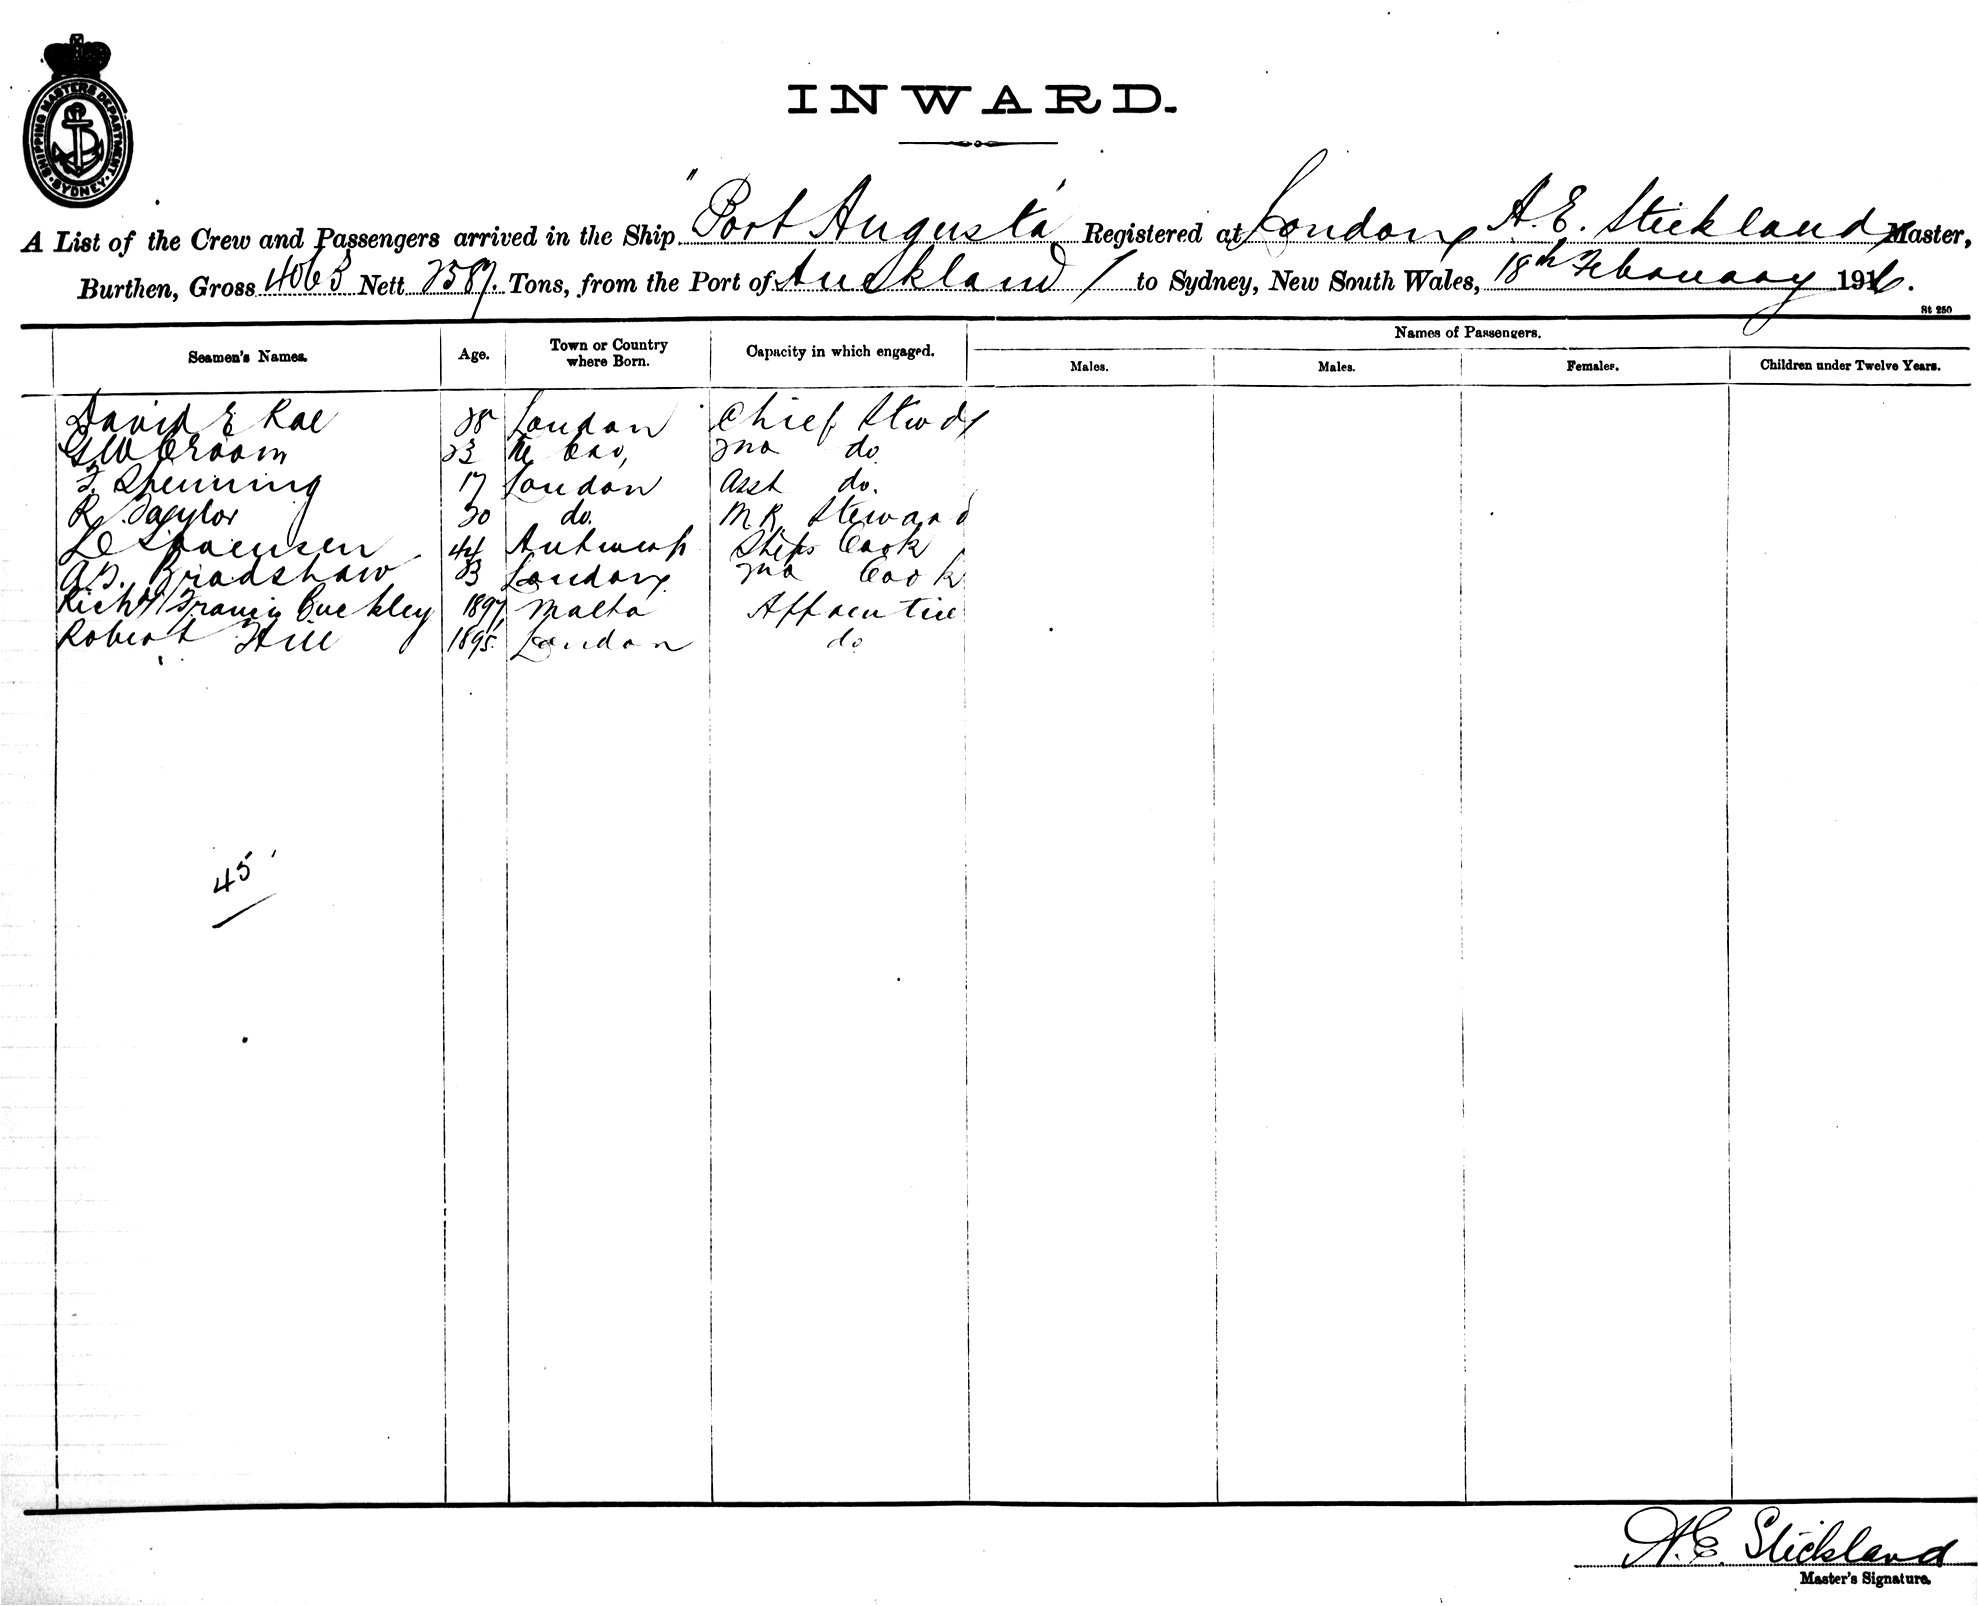 SHIPPING MASTERS DEPARTMENT
SYDNEY
INWARD.
A List of the Crew and Passengers arrived in the Ship "Port Augusta" Registered at London A. E. Stickland Master,
Burthen, Gross 4063 Nett 2587. Tons, from the Port of Auckland / to Sydney, New South Wales, 18th February 1916.
St 250
Seamen's Names. Age. Town or Country where Born. Capacity in which engaged. Names of Passengers.
Males. Males. Females. Children under Twelve Years.
David E Rae 28 London Chief Stwd
G W Groom 23 do
F. Spenning 17 London Asst do.
R Taylor 20 do. M R Steward
Sorensen 44 Antwerp Ships Cook
Bradshaw 23 London 2nd Cook
Richd Francis Buckley 1897, Malta Apprentice
Robert Hill 1895. London do
45
A. E. Stickland
Master's Signature.